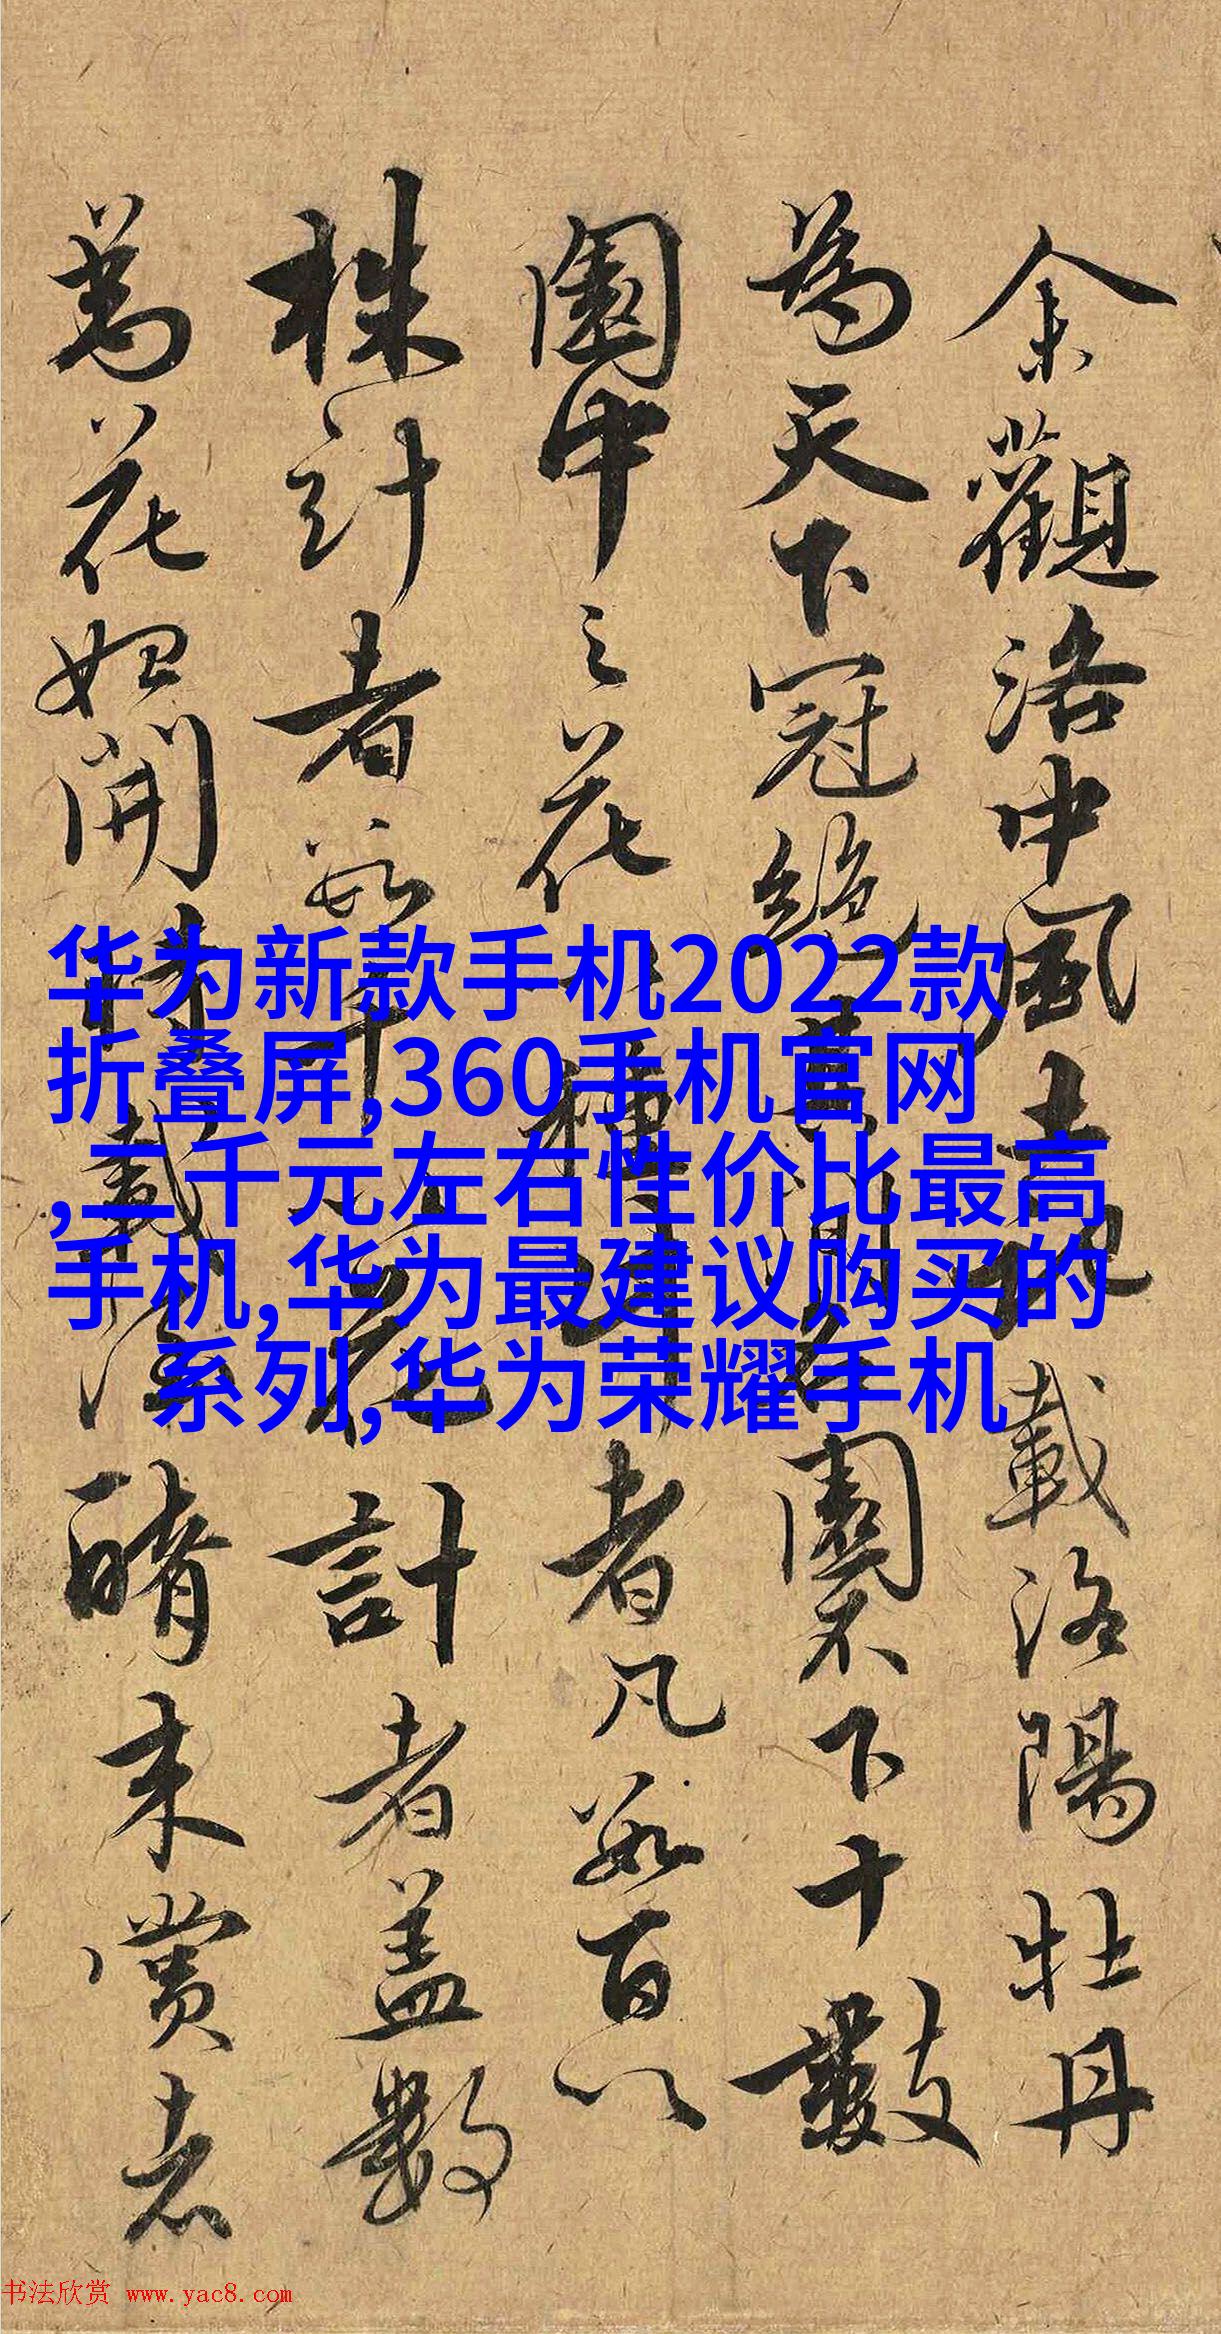 余觀洛中風土地載洛陽牡丹
為天下冠絕其間名園不下十數
園中之花種者凡数百以
株計者数千花計者蓋數
萬花如開時載酒来賞者
华为新款手机2022款
折叠屏,360手机官网
,二千元左右性价比最高
手机,华为最建议购买的
系列,华为荣耀手机
书法欣赏 www.yac8.com